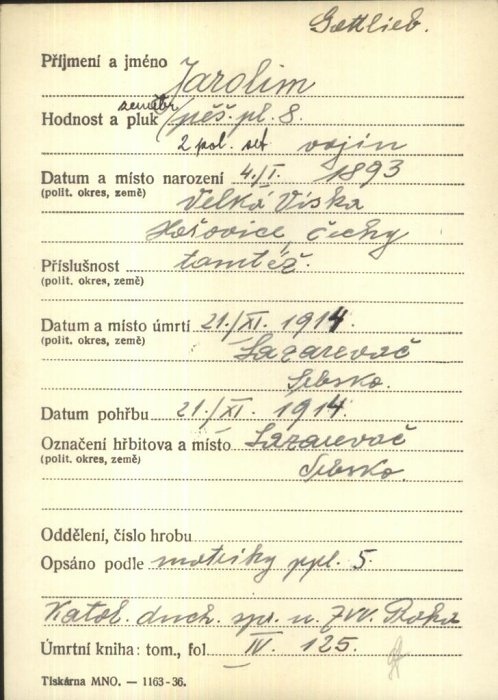 Gottlieb.
Příjmení a jméno Jarolim
Hodnost a pluk zeměbr. pěš. pl. 8.
2 pol. set. vojín
Datum a místo narození 4./I. 1893
(polit. okres, země) Velká Víska
Hořovice, Čechy
Příslušnost tamtéž.
(polit. okres, země)
Datum a místo úmrtí 21./XI. 1914.
(polit. okres, země) Lazarevač
Srbsko.
Datum pohřbu 21./XI. 1914.
Označení hřbitova a místo Lazarevač
(polit. okres, země) Srbsko.
Oddělení, číslo hrobu
Opsáno podle matriky ppl. 5.
Katol. duch. spr. u ZVV. Praha
Úmrtní kniha: tom., fol. IV. 125.
Tiskárna MNO. — 1163-36.